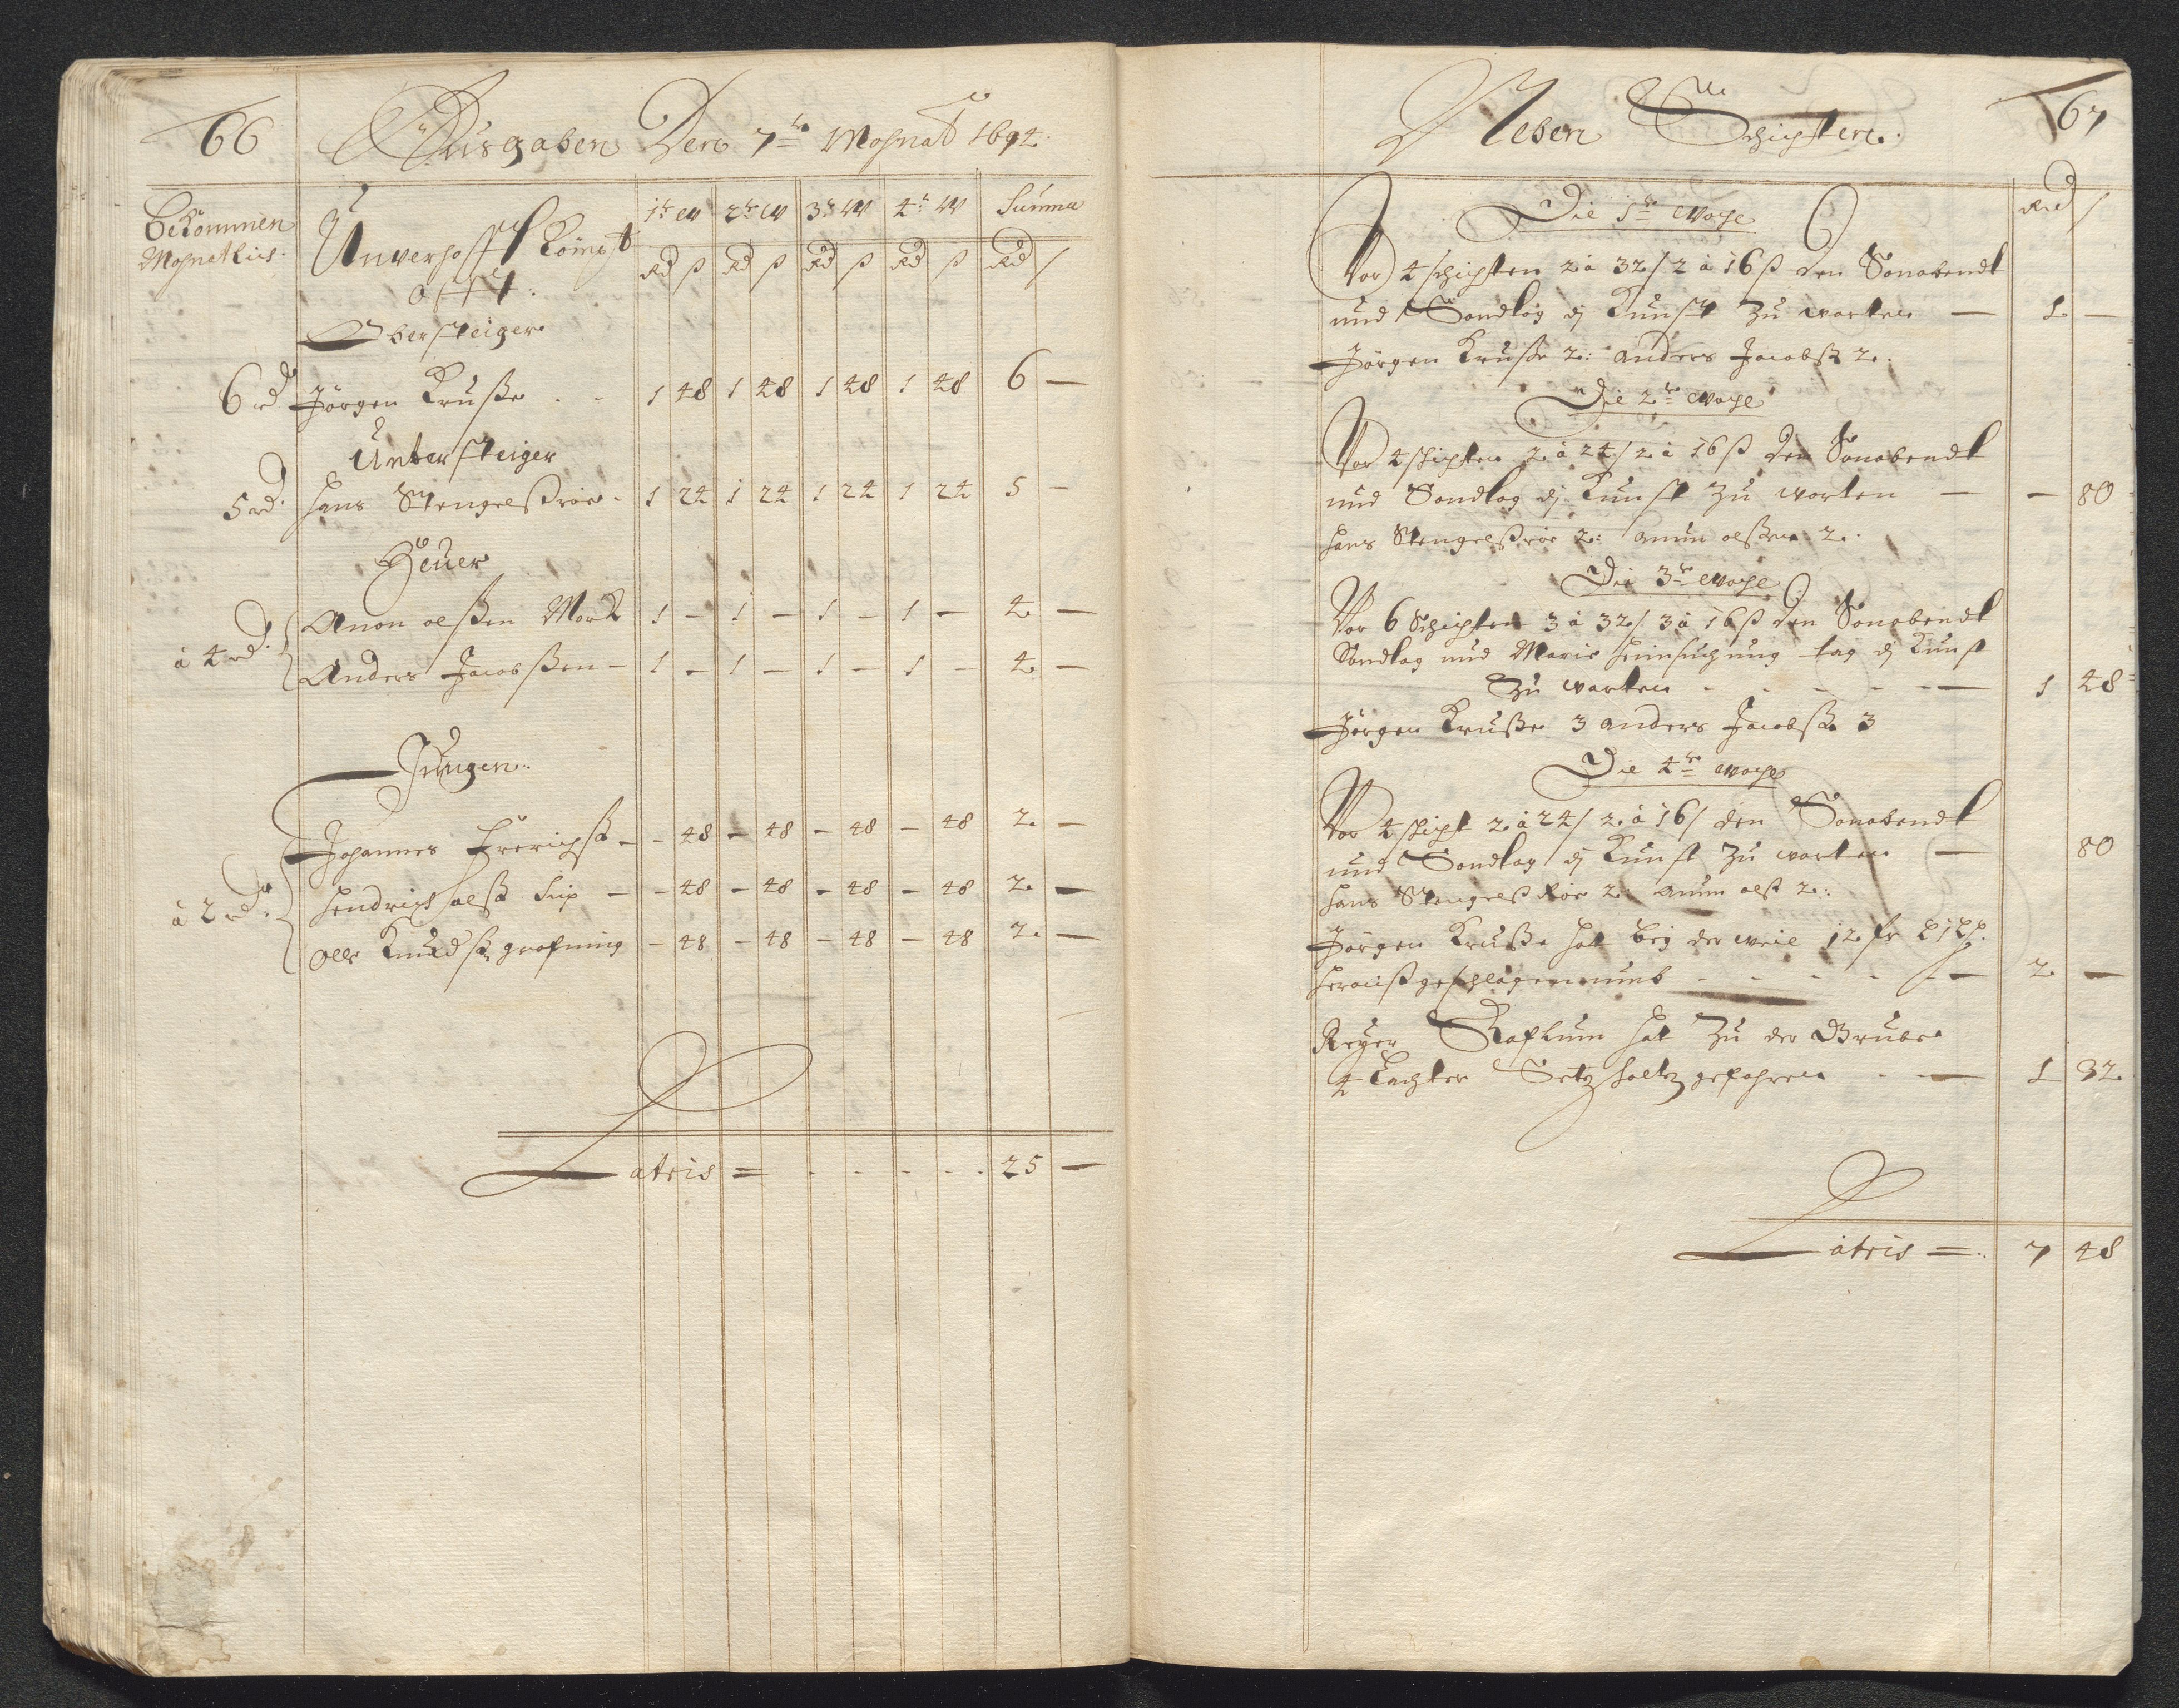 66
Ausgaben Den 7te Mohnat 1694.
Bekommen Mohnatlich.
Unverhofft kömpt offt.
1te W 2te W 3te W 4te W Summa
Rd ß Rd ß Rd ß Rd ß Rd ß
Obersteiger
6 rd Jörgen Kruße 1 48 1 48 1 48 1 48 6 —
Untersteiger
5 rd. Hans Stengelßröe 1 24 1 24 1 24 1 24 5 —
Heuer
à 4 rd. Amon olßen Morck 1 — 1 — 1 — 1 — 4. —
Anders Jacobßen — 1 — 1 — 1 — 1 — 4. —
Jungen.
à 2 rd. Johannes — 48 — 48 — 48 — 48 2. —
Hendrich olß — — 48 — 48 — 48 — 48 2. —
Olle Knudß — 48 — 48 — 48 — 48 2. —
Latris = 25 —
67
Neben Schichten.
Rd ß
Die 1te Woche
Vor 4 schichten 2 à 32/ 2 à 16 ß den Sonabendt
und Sondtag dj Kunst zu warten — 1. —
Jörgen Kruße 2: Anders Jacobß 2.
Die 2te Woche
Vor 4 schichten 2 à 24/ 2 à 16 ß den Sonabendt
und Sondtag dj Kunst zu warten — — 80
Hans Stengelßröe 2: Amun olßen 2.
Die 3te Woche
Vor 6 Schichten 3 à 32/ 3 à 16 ß den Sonabendt
Sondtag und Marie Heimsuchung tag dj Kunst
zu warten — 1 48
Jörgen Kruße 3 Anders Jacobß 3
Die 4te Woche
Vor 4 schicht 2 à 24/ 2 à 16/ den Sonabendt
und Sondtag dj Kunst zu warten — 80
Hans Stengelß Röe 2: Amun olß 2.:
Jörgen Kruße hat beij der weil 12
heraußgeschlagen — 2. —
Reyer hat zu der Grube
4 Lachter Setzholtz gefahren — 1 32.
Latris =. 7 48